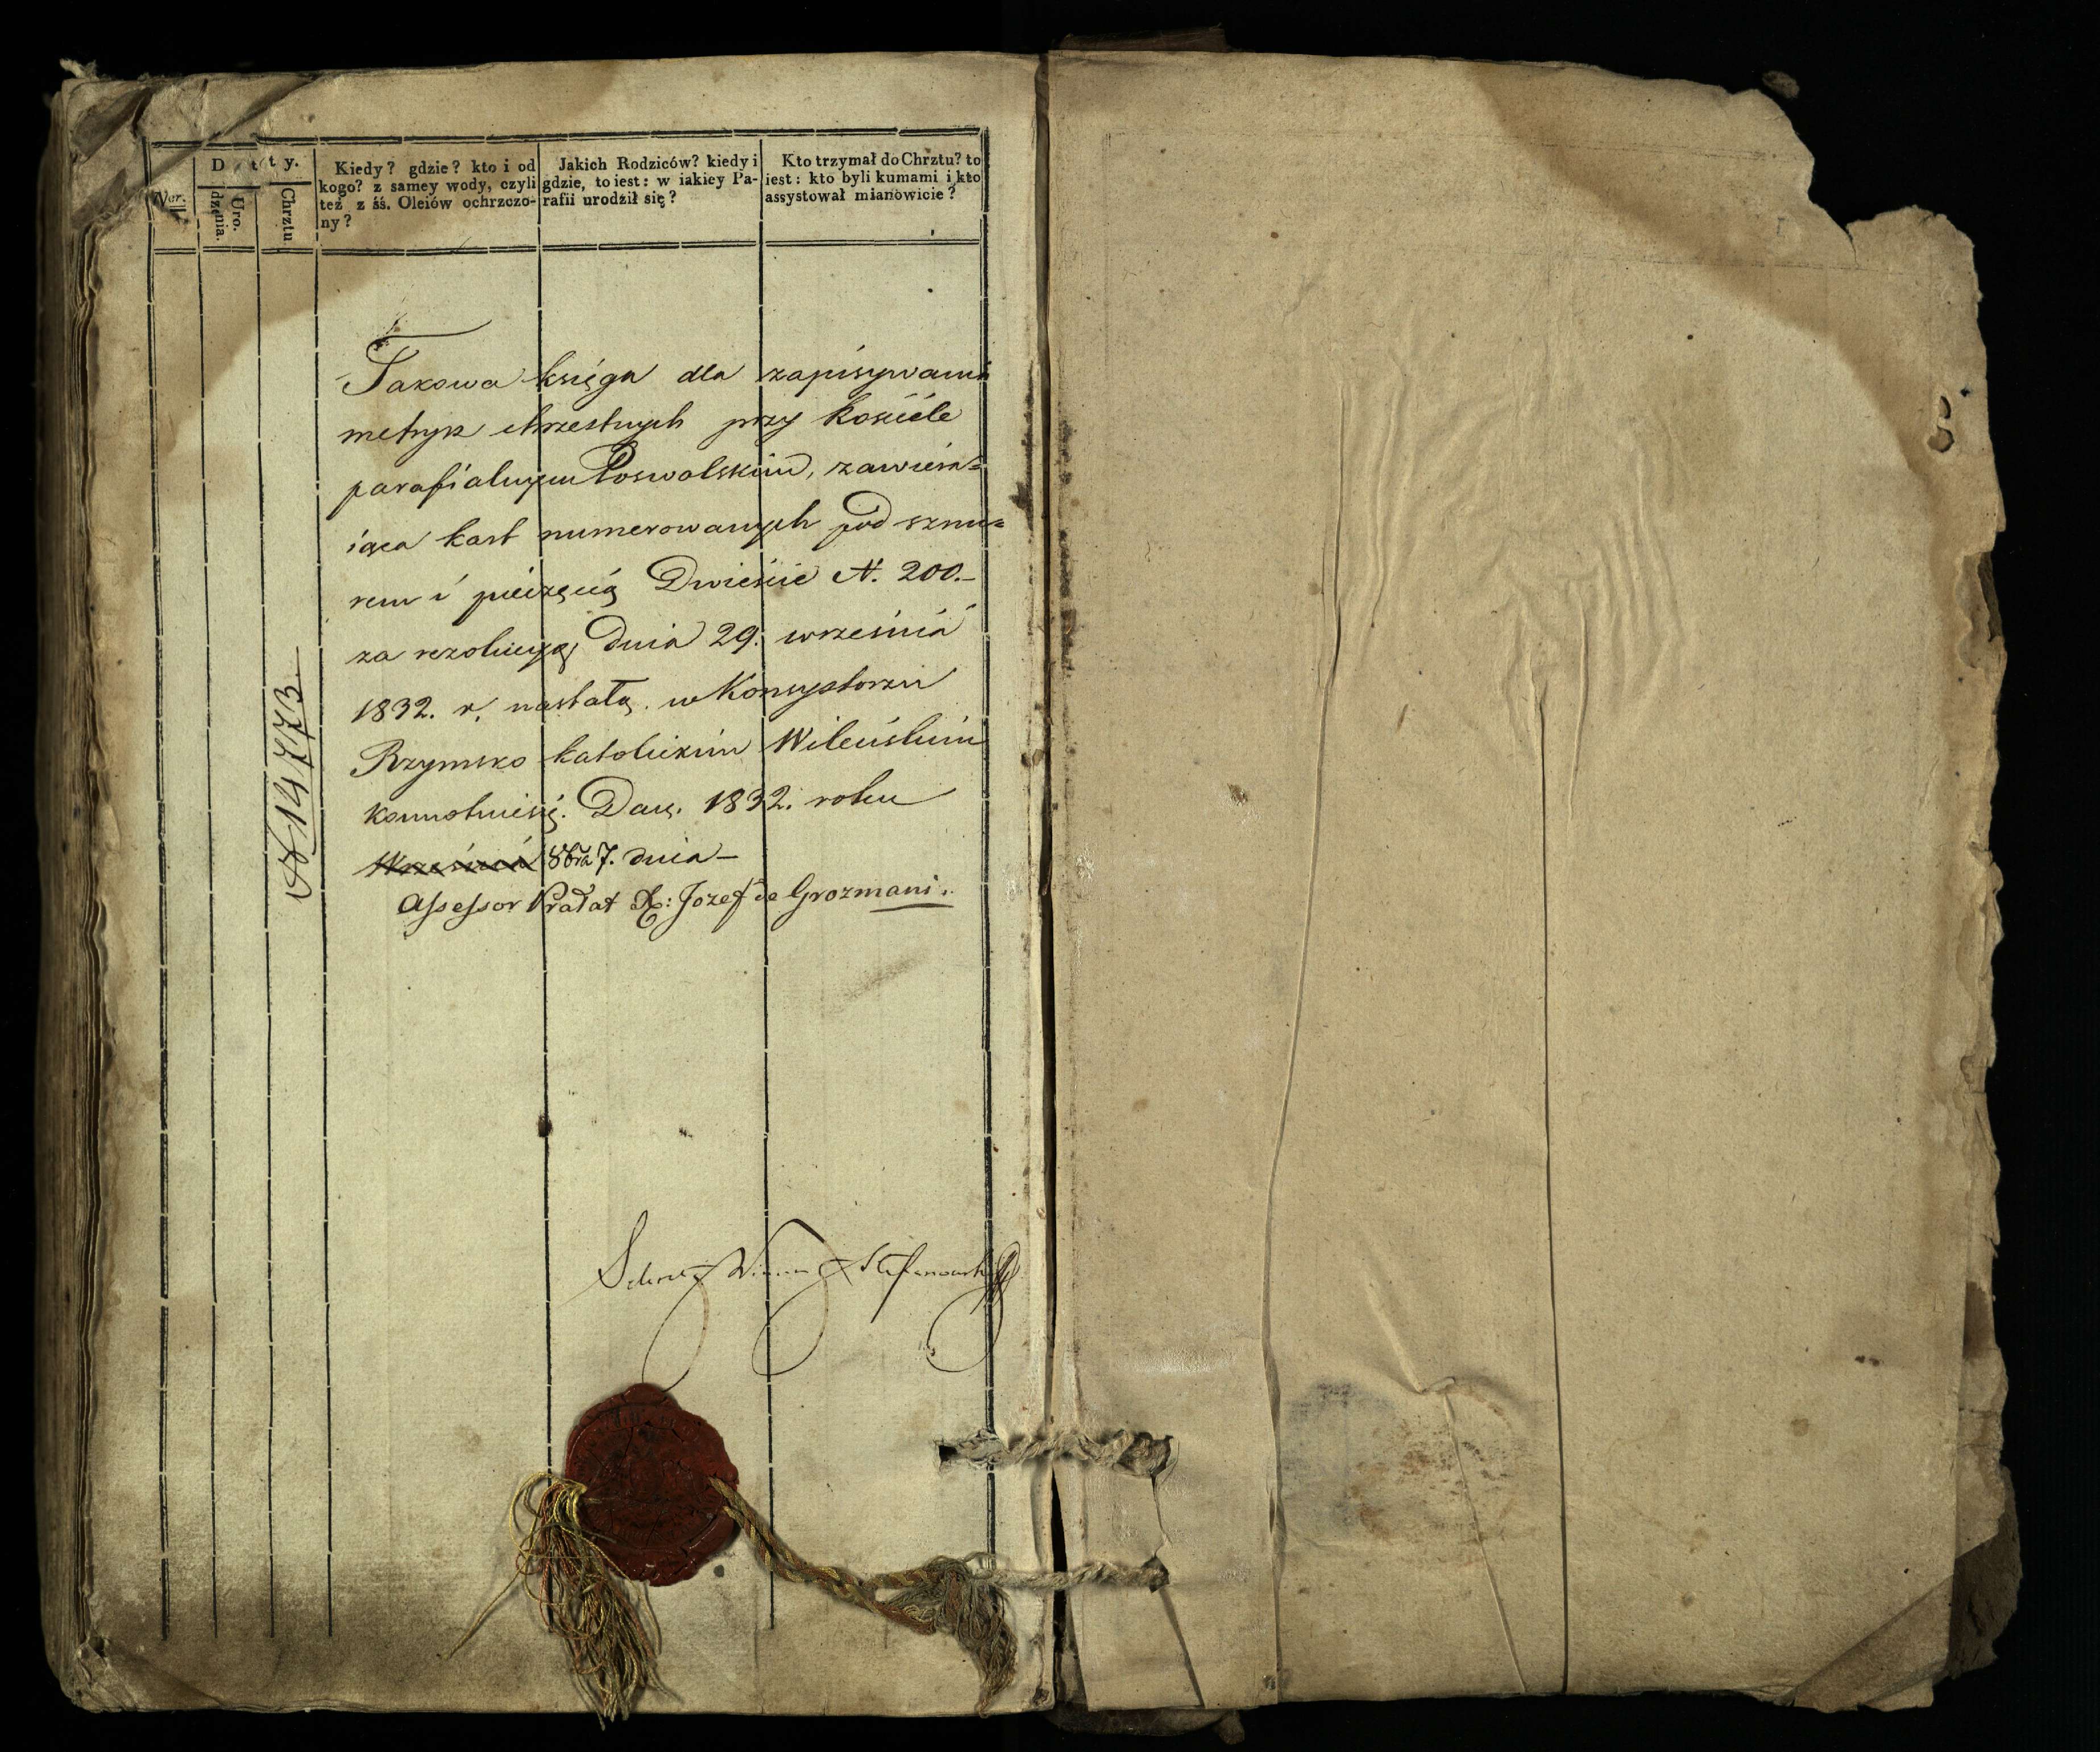 Ner.
Daty.
Uro.
dzenia.
Chrztu
Kiedy? gdzie? kto i od
kogo? z samey wody, czyli
też z śś. Oleiów ochrzczo-
ny?
Jakich Rodziców? kiedy i
gdzie, to iest: w iakiey Pa-
rafii urodził się?
Kto trzymał do Chrztu? to
iest: kto byli kumami i kto
assystował mianowicie?
Takowa księga dla zapisywania
metryk chrzestnych przy kościele
parafialnym Poswolskim, zawiera=
iąca kart numerowanych pod sznu=
rem i pieczęcią Dwieście N. 200.-
za rezolucyą dnia 29. września
1832. r. nastałą. w Konsystorzu
Rzymsko katolickim Wileńskim
komotniesię. Dan. 1832. roku
Września 8bra 7. dnia -
Assessor Prałat X: Jozef de Grozmani.
N 14773.